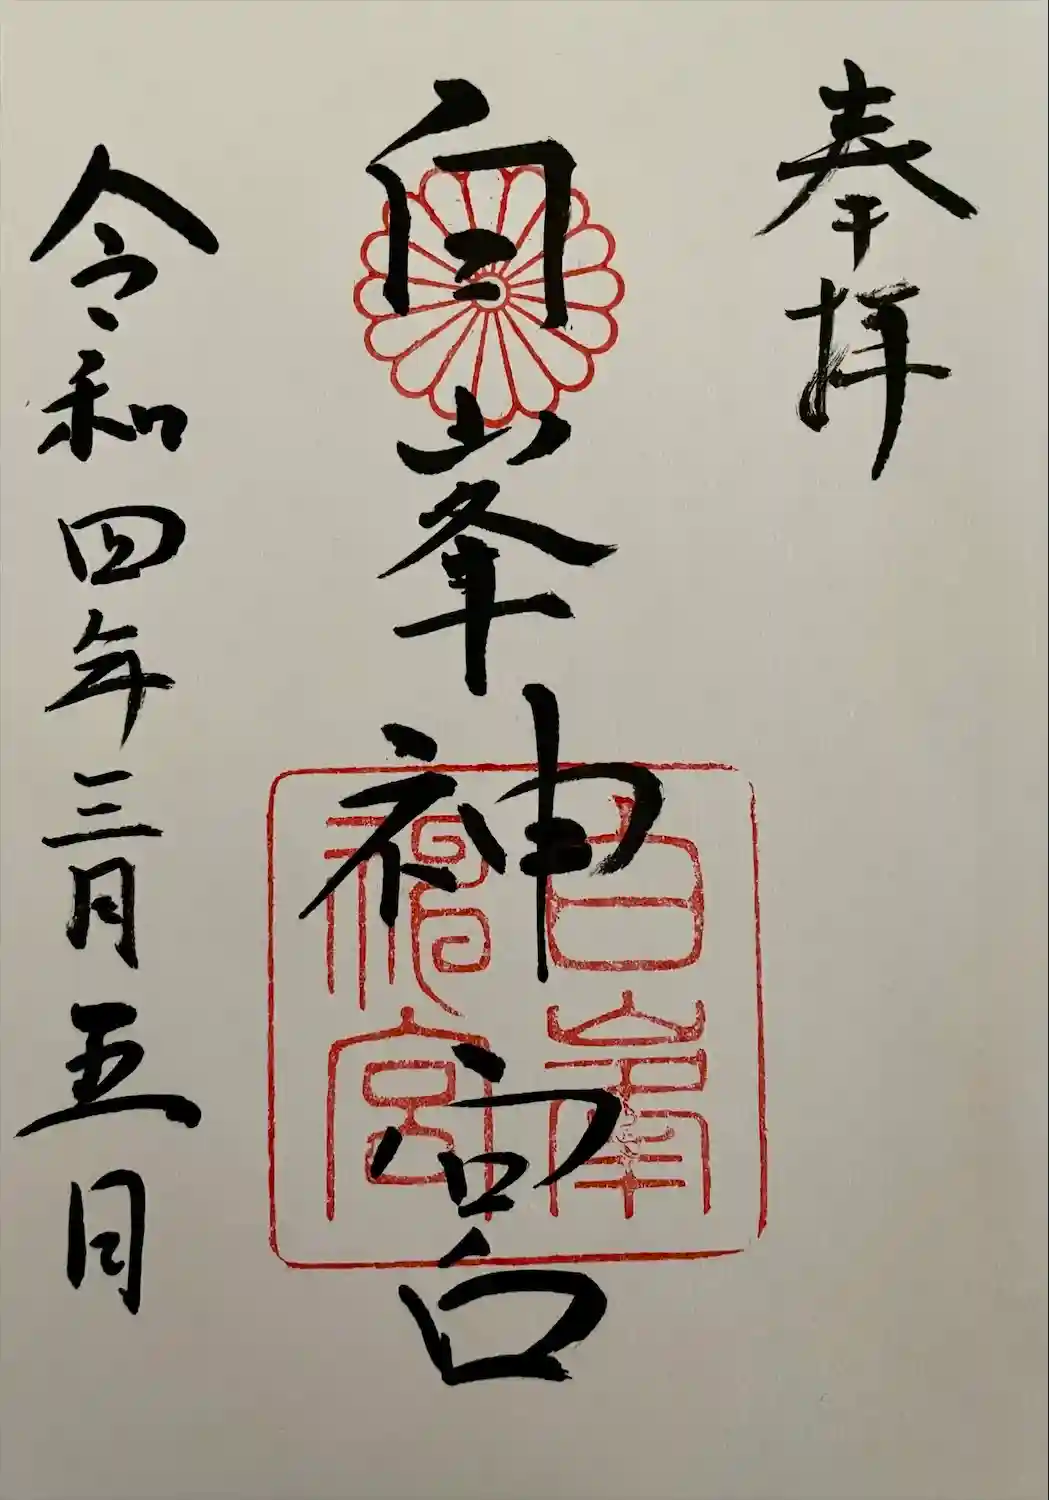 奉拝
白峯神宮
白峯
神宮
令和四年三月五日